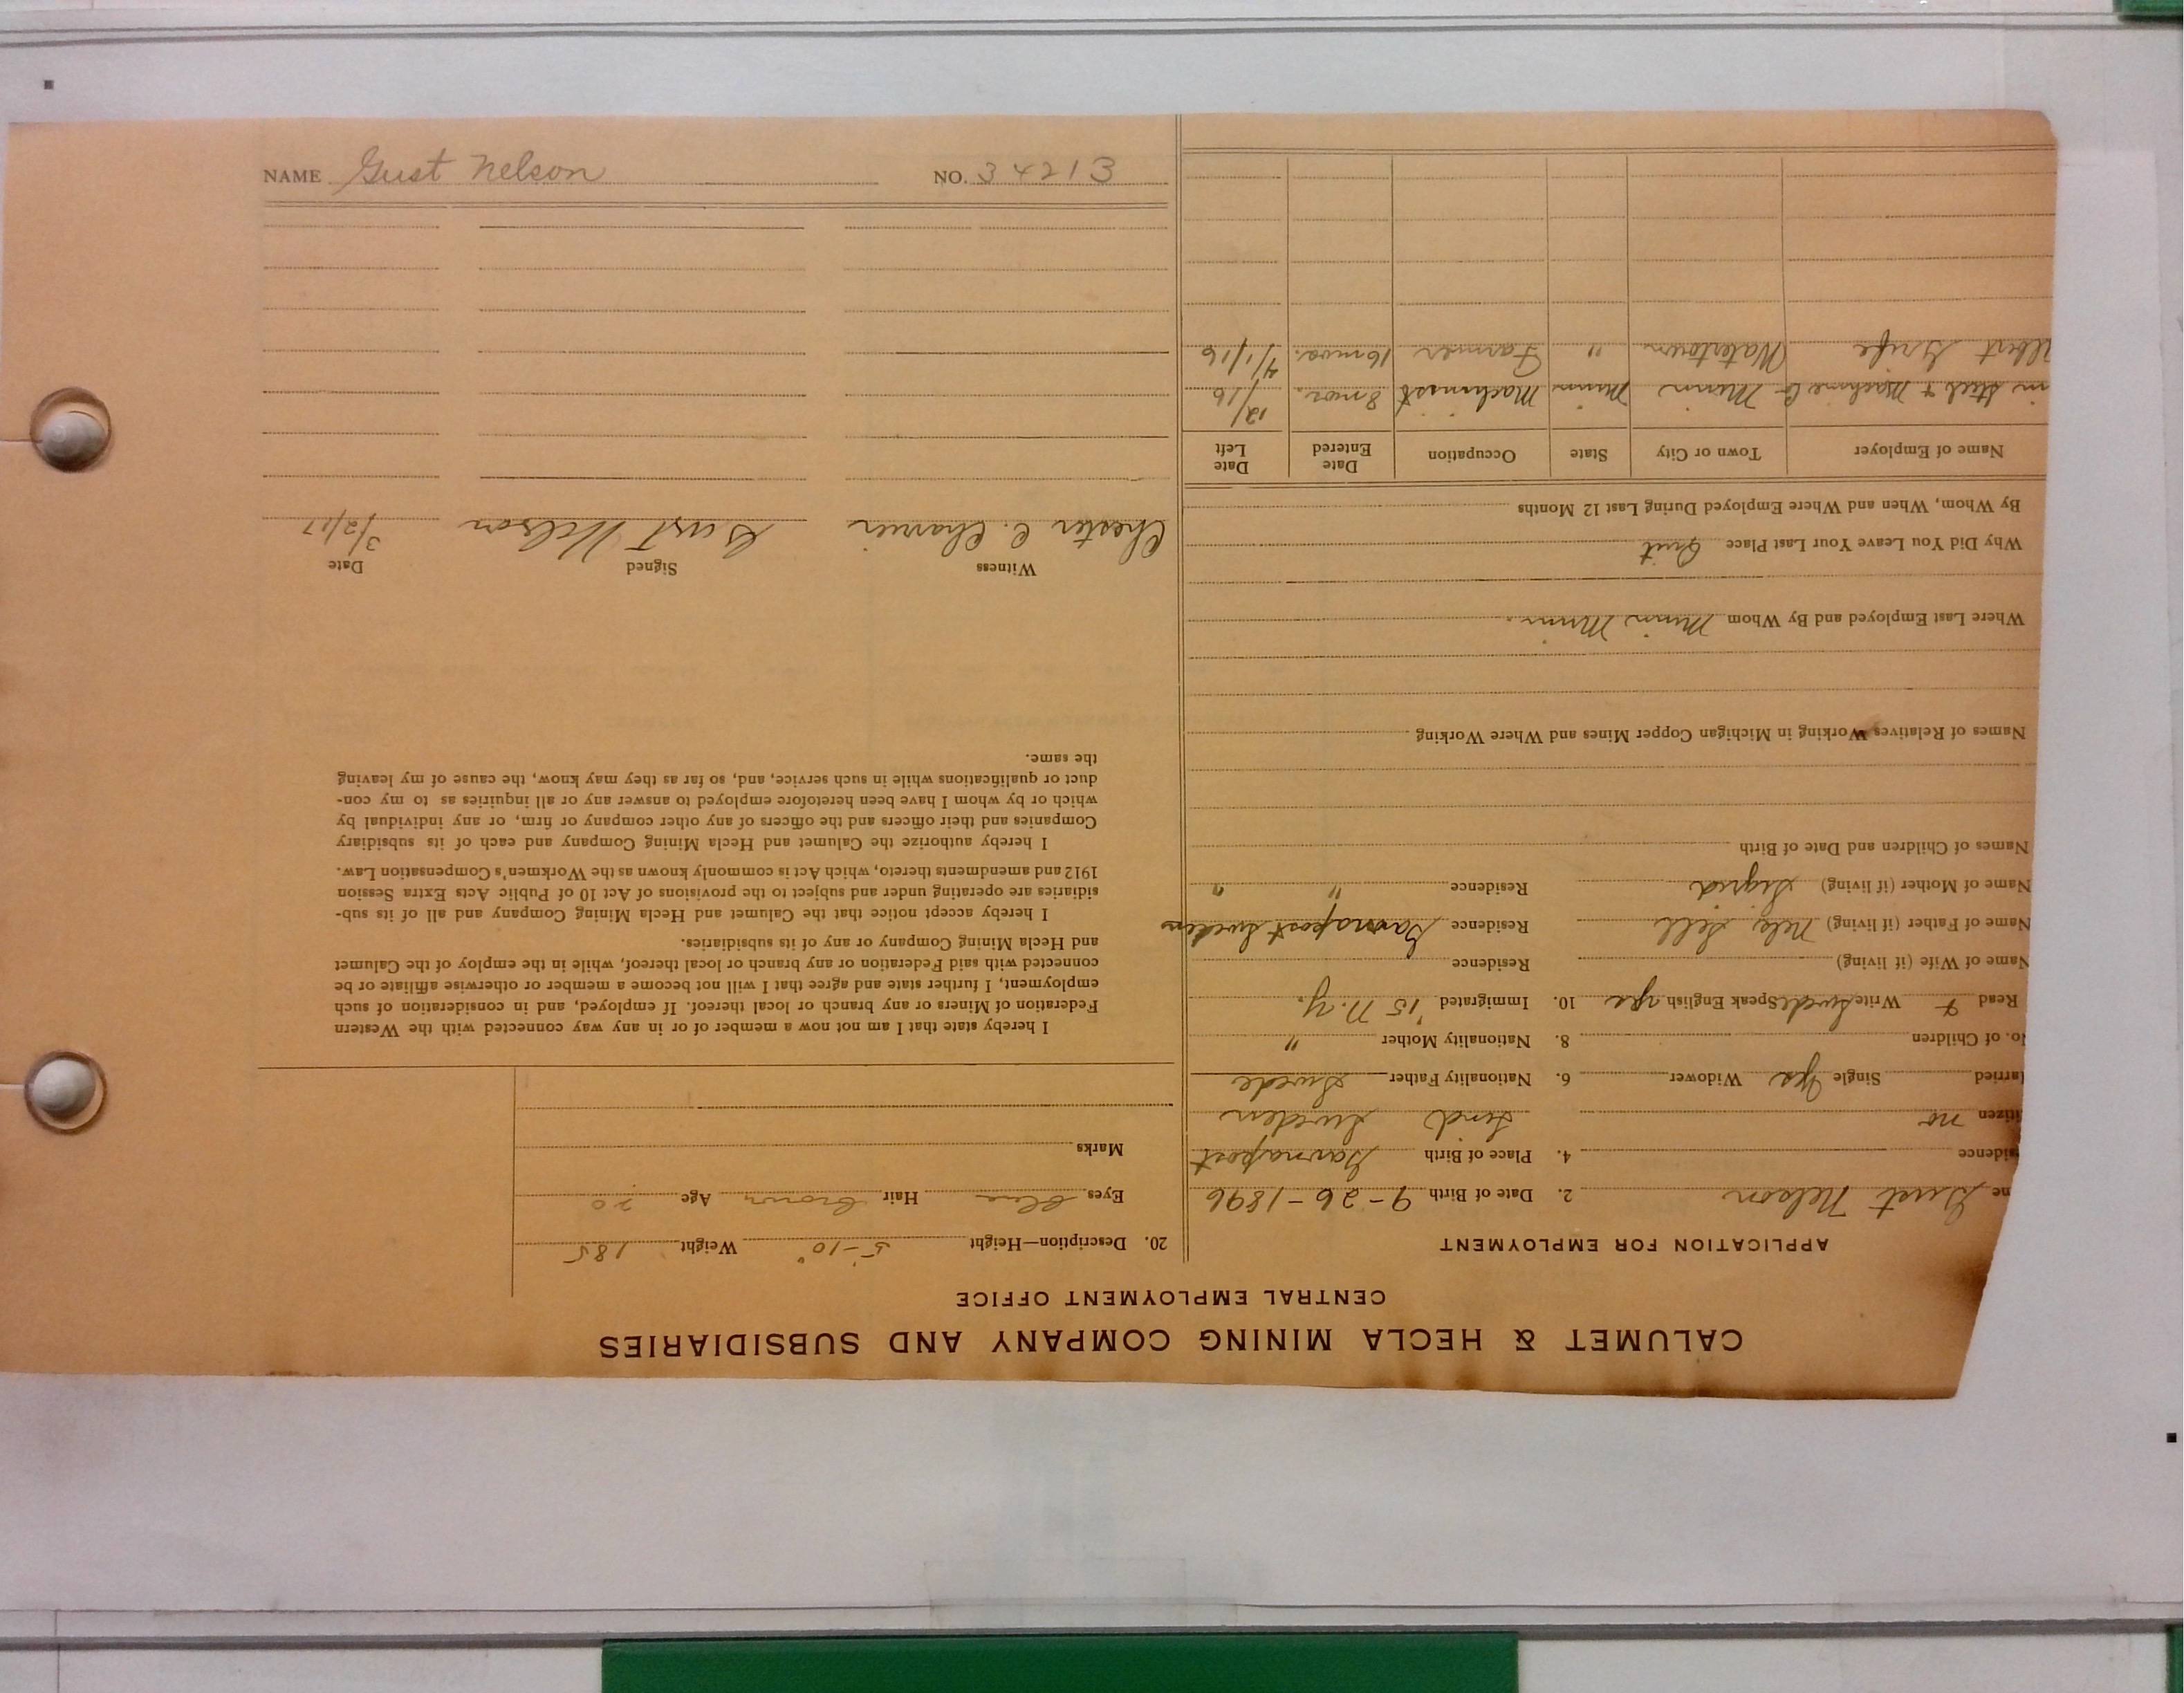 NAME Gust Nelson NO. 34213
CALUMET & HECLA MINING COMPANY AND SUBSIDIARIES
CENTRAL EMPLOYMENT OFFICE
APPLICATION FOR EMPLOYMENT
me Gust Nelson 2. Date of Birth 9-26-1896
sidence 4. Place of Birth Barnapost
itizen no Lund Sweden
arried Single yes Widower 6. Nationality Father Swede
No. of Children 8. Nationality Mother "
Read & Write Swede Speak English yes 10. Immigrated '15 N.Y.
Name of Wife (if living) Residence
Name of Father (if living) Nels Sell Residence Barnapost Sweden
Name of Mother (if living) Sigrid Residence " "
Names of Children and Date of Birth
Names of Relatives Working in Michigan Copper Mines and Where Working
Where Last Employed and By Whom Minn Minn.
Why Did You Leave Your Last Place Quit
By Whom, When and Where Employed During Last 12 Months
Name of Employer Town or City State Occupation Date Entered Date Left
in Steel & Machine Co Minn Minn Machinist 8 mos. 12/16
lbert Watertown " Farmer 16 mos. 4/1/16
20. Description—Height 5-10" Weight 185
Eyes blue Hair brown Age 20
Marks
I hereby state that I am not now a member of or in any way connected with the Western
Federation of Miners or any branch or local thereof. If employed, and in consideration of such
employment, I further state and agree that I will not become a member or otherwise affiliate or be
connected with said Federation or any branch or local thereof, while in the employ of the Calumet
and Hecla Mining Company or any of its subsidiaries.
I hereby accept notice that the Calumet and Hecla Mining Company and all of its sub-
sidiaries are operating under and subject to the provisions of Act 10 of Public Acts Extra Session
1912 and amendments thereto, which Act is commonly known as the Workmen's Compensation Law.
I hereby authorize the Calumet and Hecla Mining Company and each of its subsidiary
Companies and their officers and the officers of any other company or firm, or any individual by
which or by whom I have been heretofore employed to answer any or all inquiries as to my con-
duct or qualifications while in such service, and, so far as they may know, the cause of my leaving
the same.
Witness Signed Date
Chester C. Gust Nelson 3/2/17